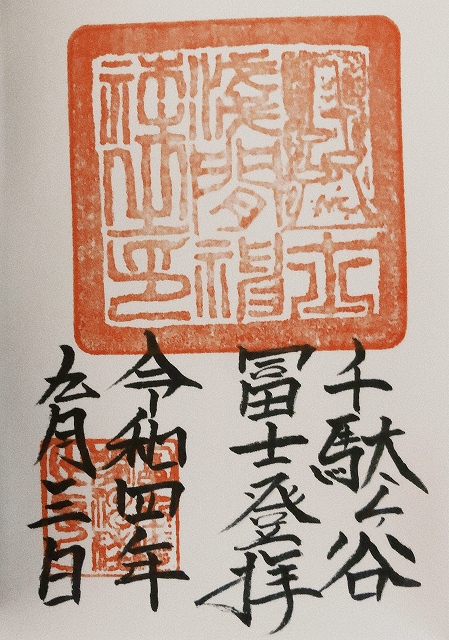 富士
淺間神
社之印
千駄ヶ谷
冨士登拝
令和四年
九月三日